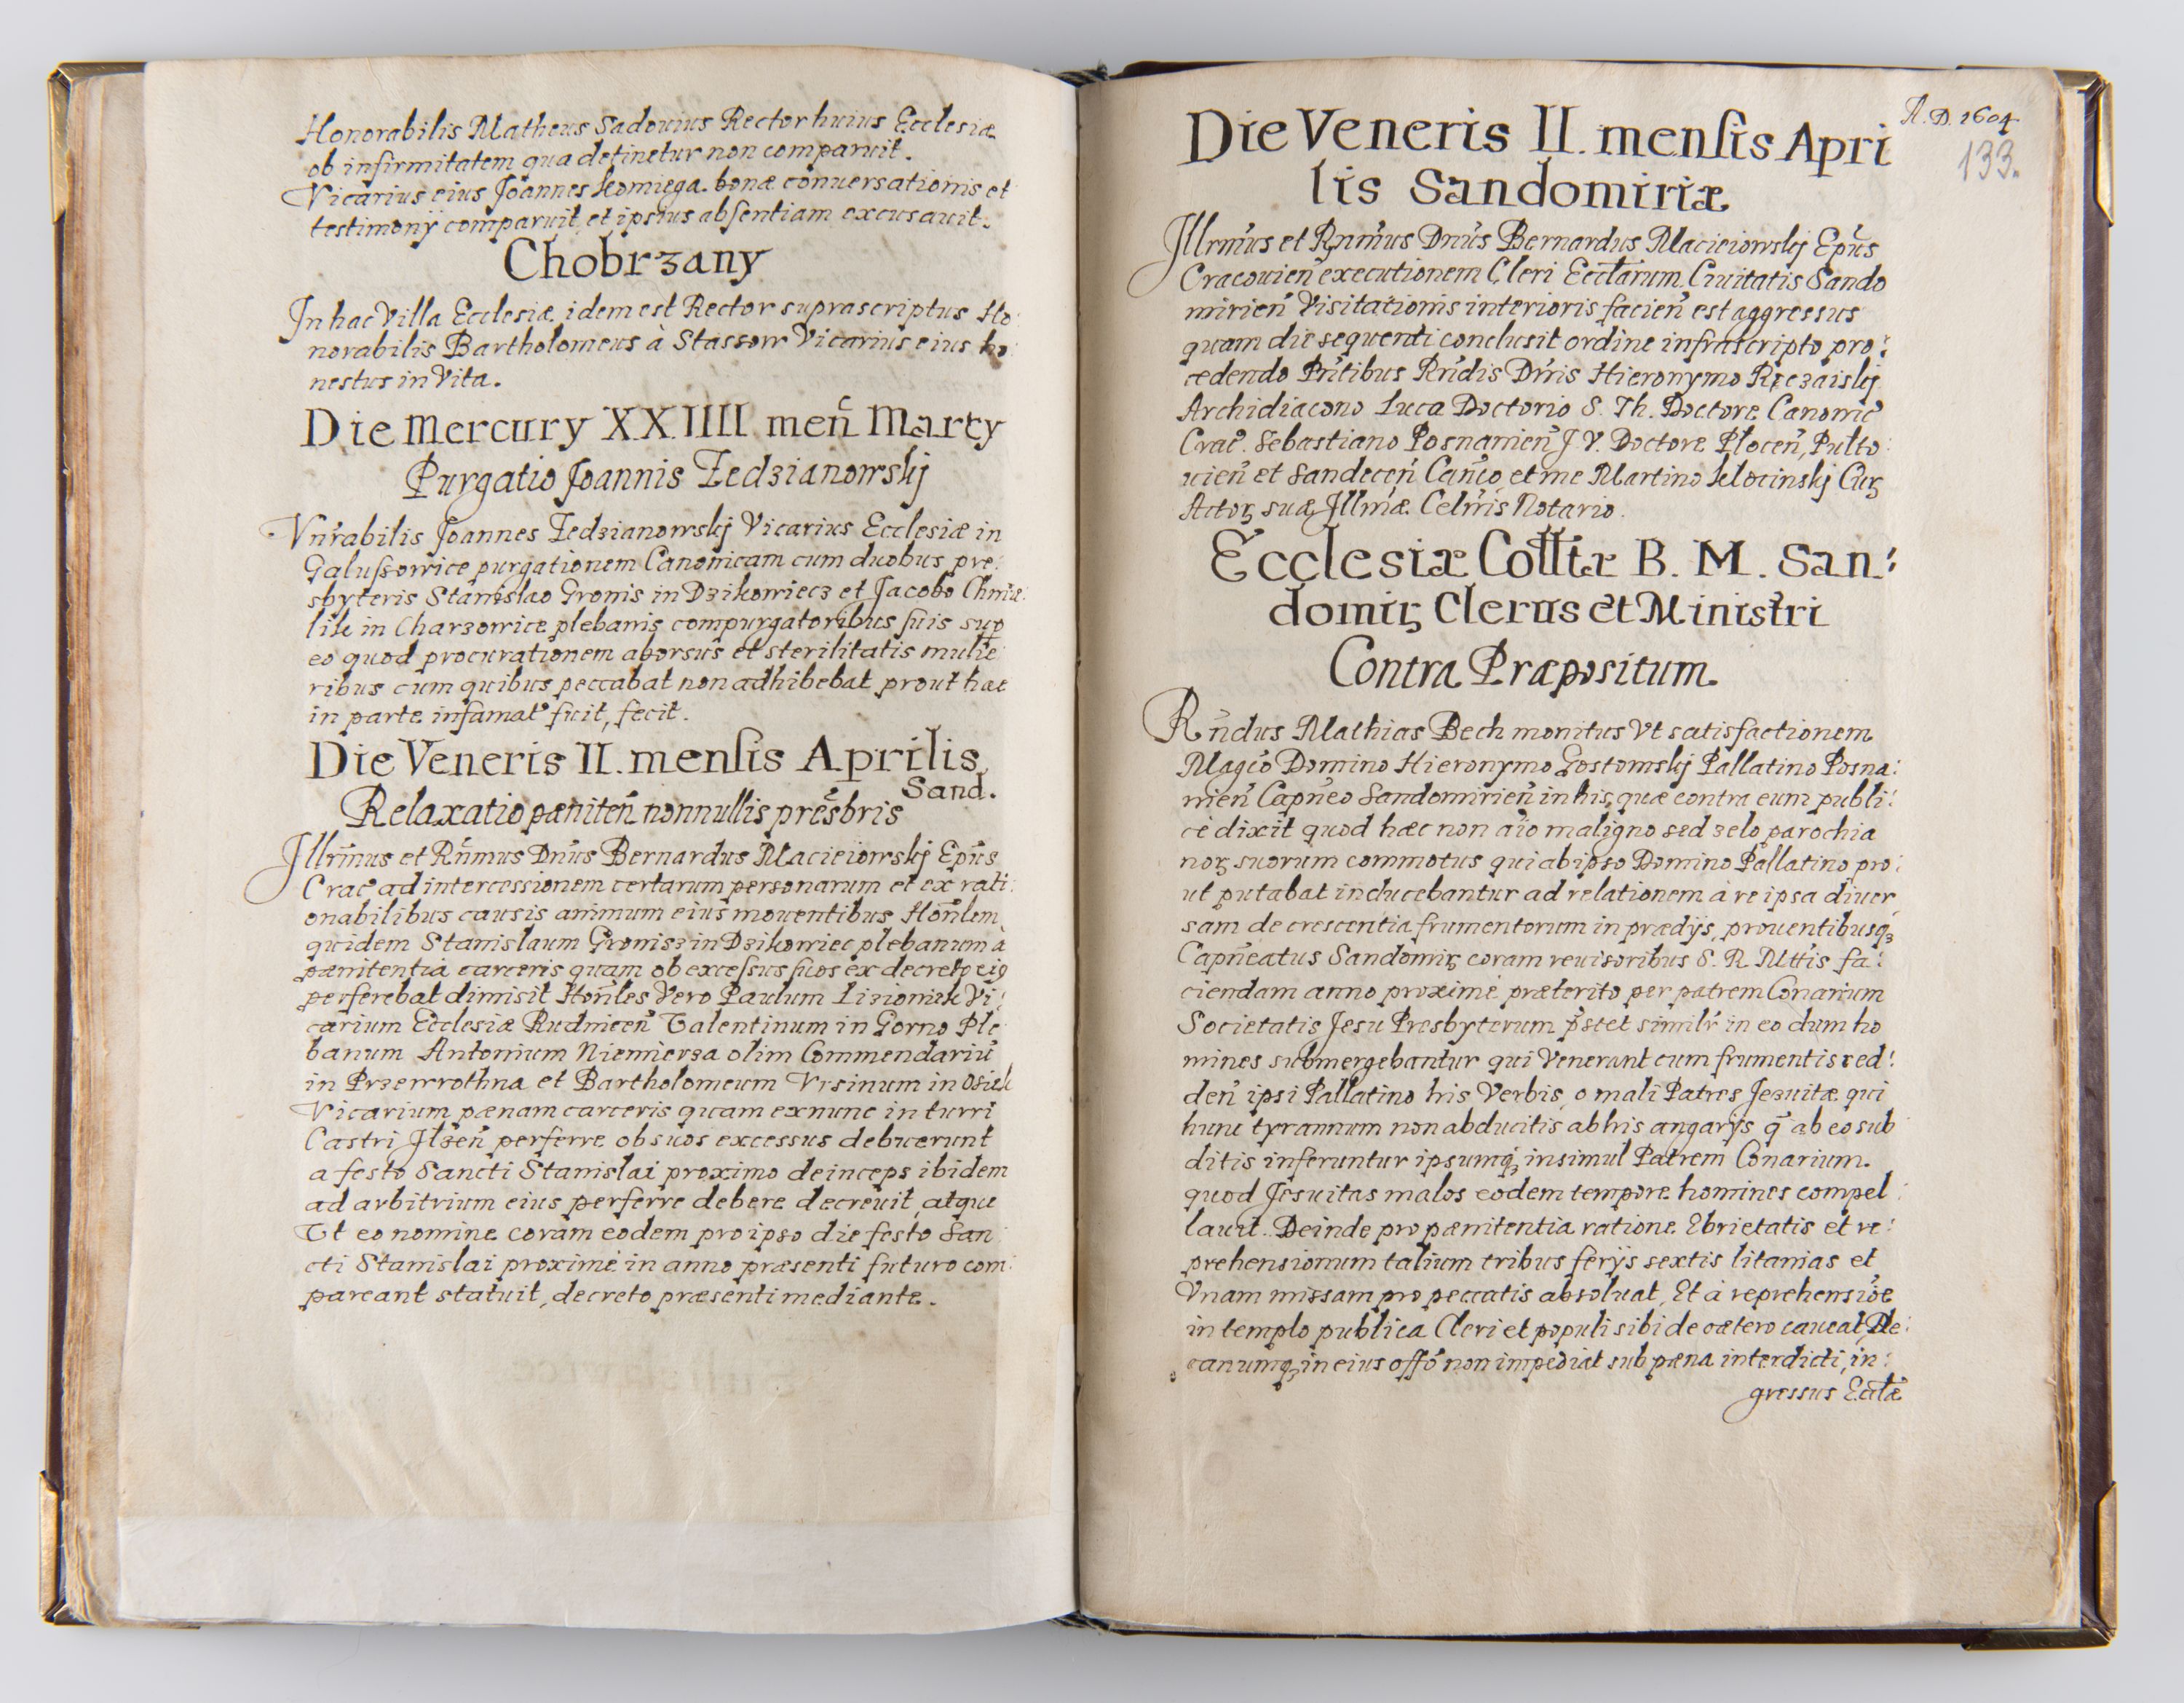 Honorabilis Matheus Sadouius Rector huius Ecclesiæ
ob infirmitatem qua detinetur non comparuit.
Vicarius eius Joannes Komiega bonæ conuersationis et
testimonÿ comparuit et ipsius absentiam excusauit.
Chobrzany
In hac Villa Ecclesiæ idem est Rector suprascriptus Ho:
norabilis Bartholomeus à Stassow Vicarius eius ho:
nestus in Vita.
Die Mercury XXIIII men̄ Marty
Purgatio Joannis Zedzianowskj
Vnr̄abilis Joannes Zedzianowskj Vicarius Ecclesiæ in
Galuszowice purgationem Canonicam cum duobus pre:
sbyteris Stanislao Gronis in Dzikowiecz et Jacobo Chmie:
lik in Charzowice plebanis compurgatoribus suis sup
eo quod procurationem aborsus et sterilitatis mulie
ribus cum quibus peccabat non adhibebat prout hac
in parte infamat⁹ fuit, fecit.
Die Veneris II. mensis Aprilis
Sand.
Relaxatio pæniten̄ nonnullis presbris
Illrm̄us et Rn̄mus Dnus Bernardus Macieiowskj Epus
Crac̄ ad intercessionem certarum personarum et ex rati:
onabilibus causis animum eius mouentibus Hon̄lem
quidem Stanislaum Gronisz in Dzikowiec plebanum à
pænitentia carceris quam ob excessus suos ex decreto ei⁹
perferebat dimisit Hon̄les Vero Paulum Lizioniek Vi:
carium Ecclesiæ Rudnicen̄ Valentinum in Gorno Ple
banum Antonium Niemierza olim Commendariū
in Przewrothna et Bartholomeum Vrsinum in Osiek
Vicarium pænam carceris quam exnunc in turri
Castri Ilzen̄ perferre ob suos excessus debuerunt
a festo Sancti Stanislai proximo deinceps ibidem
ad arbitrium eius perferre debere decreuit, atque
Vt eo nomine coram eodem pro ipso die festo San
cti Stanislai proximè in anno præsenti futuro com:
pareant statuit, decreto præsenti mediante.
A. D. 1604
133.
Die Veneris II. mensis Apri
lis Sandomiriæ
Illrmus et Rnmus Dnus Bernardus Macieiowskj Epus
Cracouien̄ executionem Cleri Ecctarum Ciuitatis Sando
mirien̄ Visitationis interioris facien̄ est aggressus
quam die sequenti conclusit ordine infrascripto pro:
cedendo Pntibus Rndis Dnis Hieronymo Reczaiskj
Archidiacono Luca Doctorio S. Th. Doctore Canonic̄
Crac̄. Sebastiano Posnanien̄ J. V. Doctore Plocen̄, Pulto:
uien̄ et Sandecen̄ Can̄co, et me Martino Klocinskj Cur
Actor suæ Illmæ Celnis Notario.
Ecclesiæ Colltæ B. M. San:
domir Clerus et Ministri
Contra Præpositum.
Rn̄dus Mathias Bech monitus Vt satisfactionem
Magco Domino Hieronymo Gostomskj Pallatino Posna:
nien̄ Capneo Sandomirien̄ in his, quæ contra eum publi:
cè dixit quod hæc non aīo maligno sed zelo parochia
nor suorum commotus qui ab ipso Domino Pallatino pro:
ut putabat inducebantur ad relationem à re ipsa diuer
sam de crescentia frumentorum in prædÿs, prouentibusq₃
Capn̄eatus Sandomir coram reuisoribus S. R. Mttis fa:
ciendam anno proximè præterito per patrem Conarium
Societatis Jesu Presbyterum pstet similr in eo dum ho
mines submergebantur qui Venerant cum frumentis red:
den̄ ipsi Pallatino his Verbis, o mali Patres Jezuitæ qui
hunc tyrannum non abducitis ab his angarÿs q̄ ab eo sub
ditis inferuntur ipsumq₃ insimul Patrem Conarium.
quod Jesuitas malos eodem tempore homines compel:
lauit. Deinde pro pænitentia ratione Ebrietatis et re:
prehensionum talium tribus ferÿs sextis litanias et
Vnam missam pro peccatis absoluat, Et à reprehensiōe
in templo publica Cleri et populi sibi de cætero caueat, De:
canumq₃ in eius offō non impediat sub pæna interdicti, in:
gressus Ecctæ